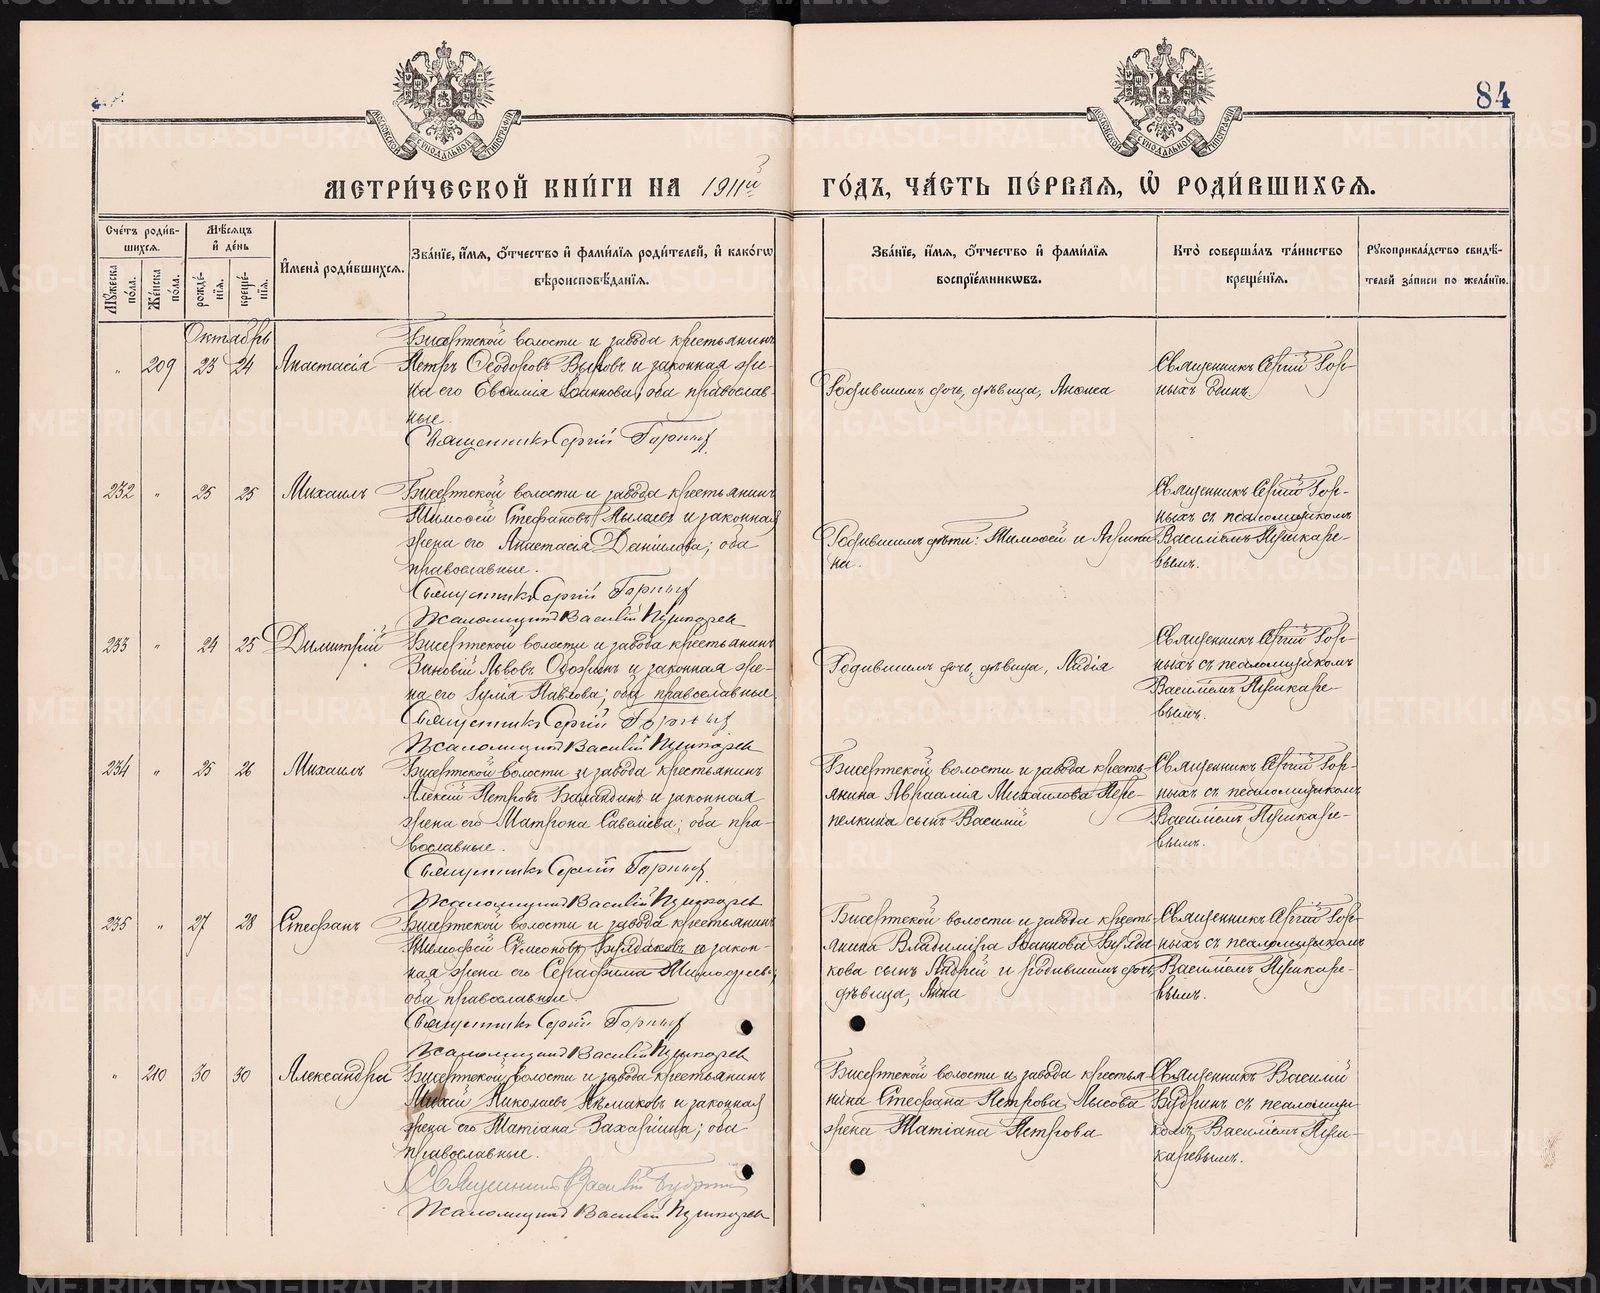 84
МЕТРИ́ЧЕСКОЙ КНИ́ГИ НА 1911й ГО́ДЪ, ЧА́СТЬ ПЕ́РВАЯ, Ѡ РОДИ́ВШИХСЯ.
Сче́тъ роди́в-
шихся.
Мꙋ́жеска по́ла.
Же́нска по́ла.
Мѣ́сяцъ
и де́нь
рожде́-
нїя.
креще́-
нїя.
И҆мена̀ роди́вшихся.
Зва́нїе, и҆́мя, ѻ҆́тчество и҆ фами́лїя роди́телей, и҆ како́гѡ
вѣроисповѣ́данїя.
Зва́нїе, и҆́мя, ѻ҆́тчество и҆ фами́лїя
воспрїе́мникѡвъ.
Кто̀ соверша́лъ та́инство
креще́нїя.
Рꙋкоприкла́дство свидѣ́-
телей за́писи по жела́нїю.
Октябрь
" 209 23 24 Анастасія
Бисертской волости и завода крестьянинъ
Петръ Ѳеодоровъ и законная же-
на его Евѳимія Іоаннова; оба православ-
ные.
Священникъ Сергій Горныхъ
Родившаго дочь, дѣвица, Анѳиса
Священникъ Сергій Гор-
ныхъ одинъ.
232 " 25 25 Михаилъ
Бисертской волости и завода крестьянинъ
Тимоѳей Стефановъ Пылаевъ и законная
жена его Анастасія Даніилова; оба
православные.
Священникъ Сергій Горныхъ
Псаломщикъ Василій Пушкаревъ
Родившаго дѣти: Тимоѳей и Агрипи-
на.
Священникъ Сергій Гор-
ныхъ съ псаломщикомъ
Василіемъ Пушкаре-
вымъ.
233 " 24 25 Димитрій
Бисертской волости и завода крестьянинъ
Зиновій Львовъ и законная же-
на его Іулія Павлова; оба православные.
Священникъ Сергій Горныхъ
Псаломщикъ Василій Пушкаревъ
Родившаго дочь, дѣвица, Лидія
Священникъ Сергій Гор-
ныхъ съ псаломщикомъ
Василіемъ Пушкаре-
вымъ.
234 " 25 26 Михаилъ
Бисертской волости и завода крестьянинъ
Алексій Петровъ Баландинъ и законная
жена его Матрона Савеліева; оба пра-
вославные.
Священникъ Сергій Горныхъ
Псаломщикъ Василій Пушкаревъ
Бисертской волости и завода кресть-
янина Авраамія Михаилова Пере-
пелкина сынъ Василій
Священникъ Сергій Гор-
ныхъ съ псаломщикомъ
Василіемъ Пушкаре-
вымъ.
235 " 27 28 Стефанъ
Бисертской волости и завода крестьянинъ
Тимоѳей Симеоновъ Бурдаковъ и закон-
ная жена его Серафима Тимоѳеева;
оба православные
Священникъ Сергій Горныхъ
Псаломщикъ Василій Пушкаревъ
Бисертской волости и завода кресть-
янина Владиміра Іоаннова Бурда-
кова сынъ Андрей и родившаго дочь,
дѣвица, Анна
Священникъ Сергій Гор-
ныхъ съ псаломщикомъ
Василіемъ Пушкаре-
вымъ.
" 210 30 30 Александра
Бисертской волости и завода крестьянинъ
Михей Николаевъ и законная
жена его Татіана Захаріина; оба
православные.
Священникъ Василій Будринъ
Псаломщикъ Василій Пушкаревъ
Бисертской волости и завода крестья-
нина Стефана Петрова Лысова
жена Татіана Петрова
Священникъ Василій
Будринъ съ псаломщи-
комъ Василіемъ Пуш-
каревымъ.